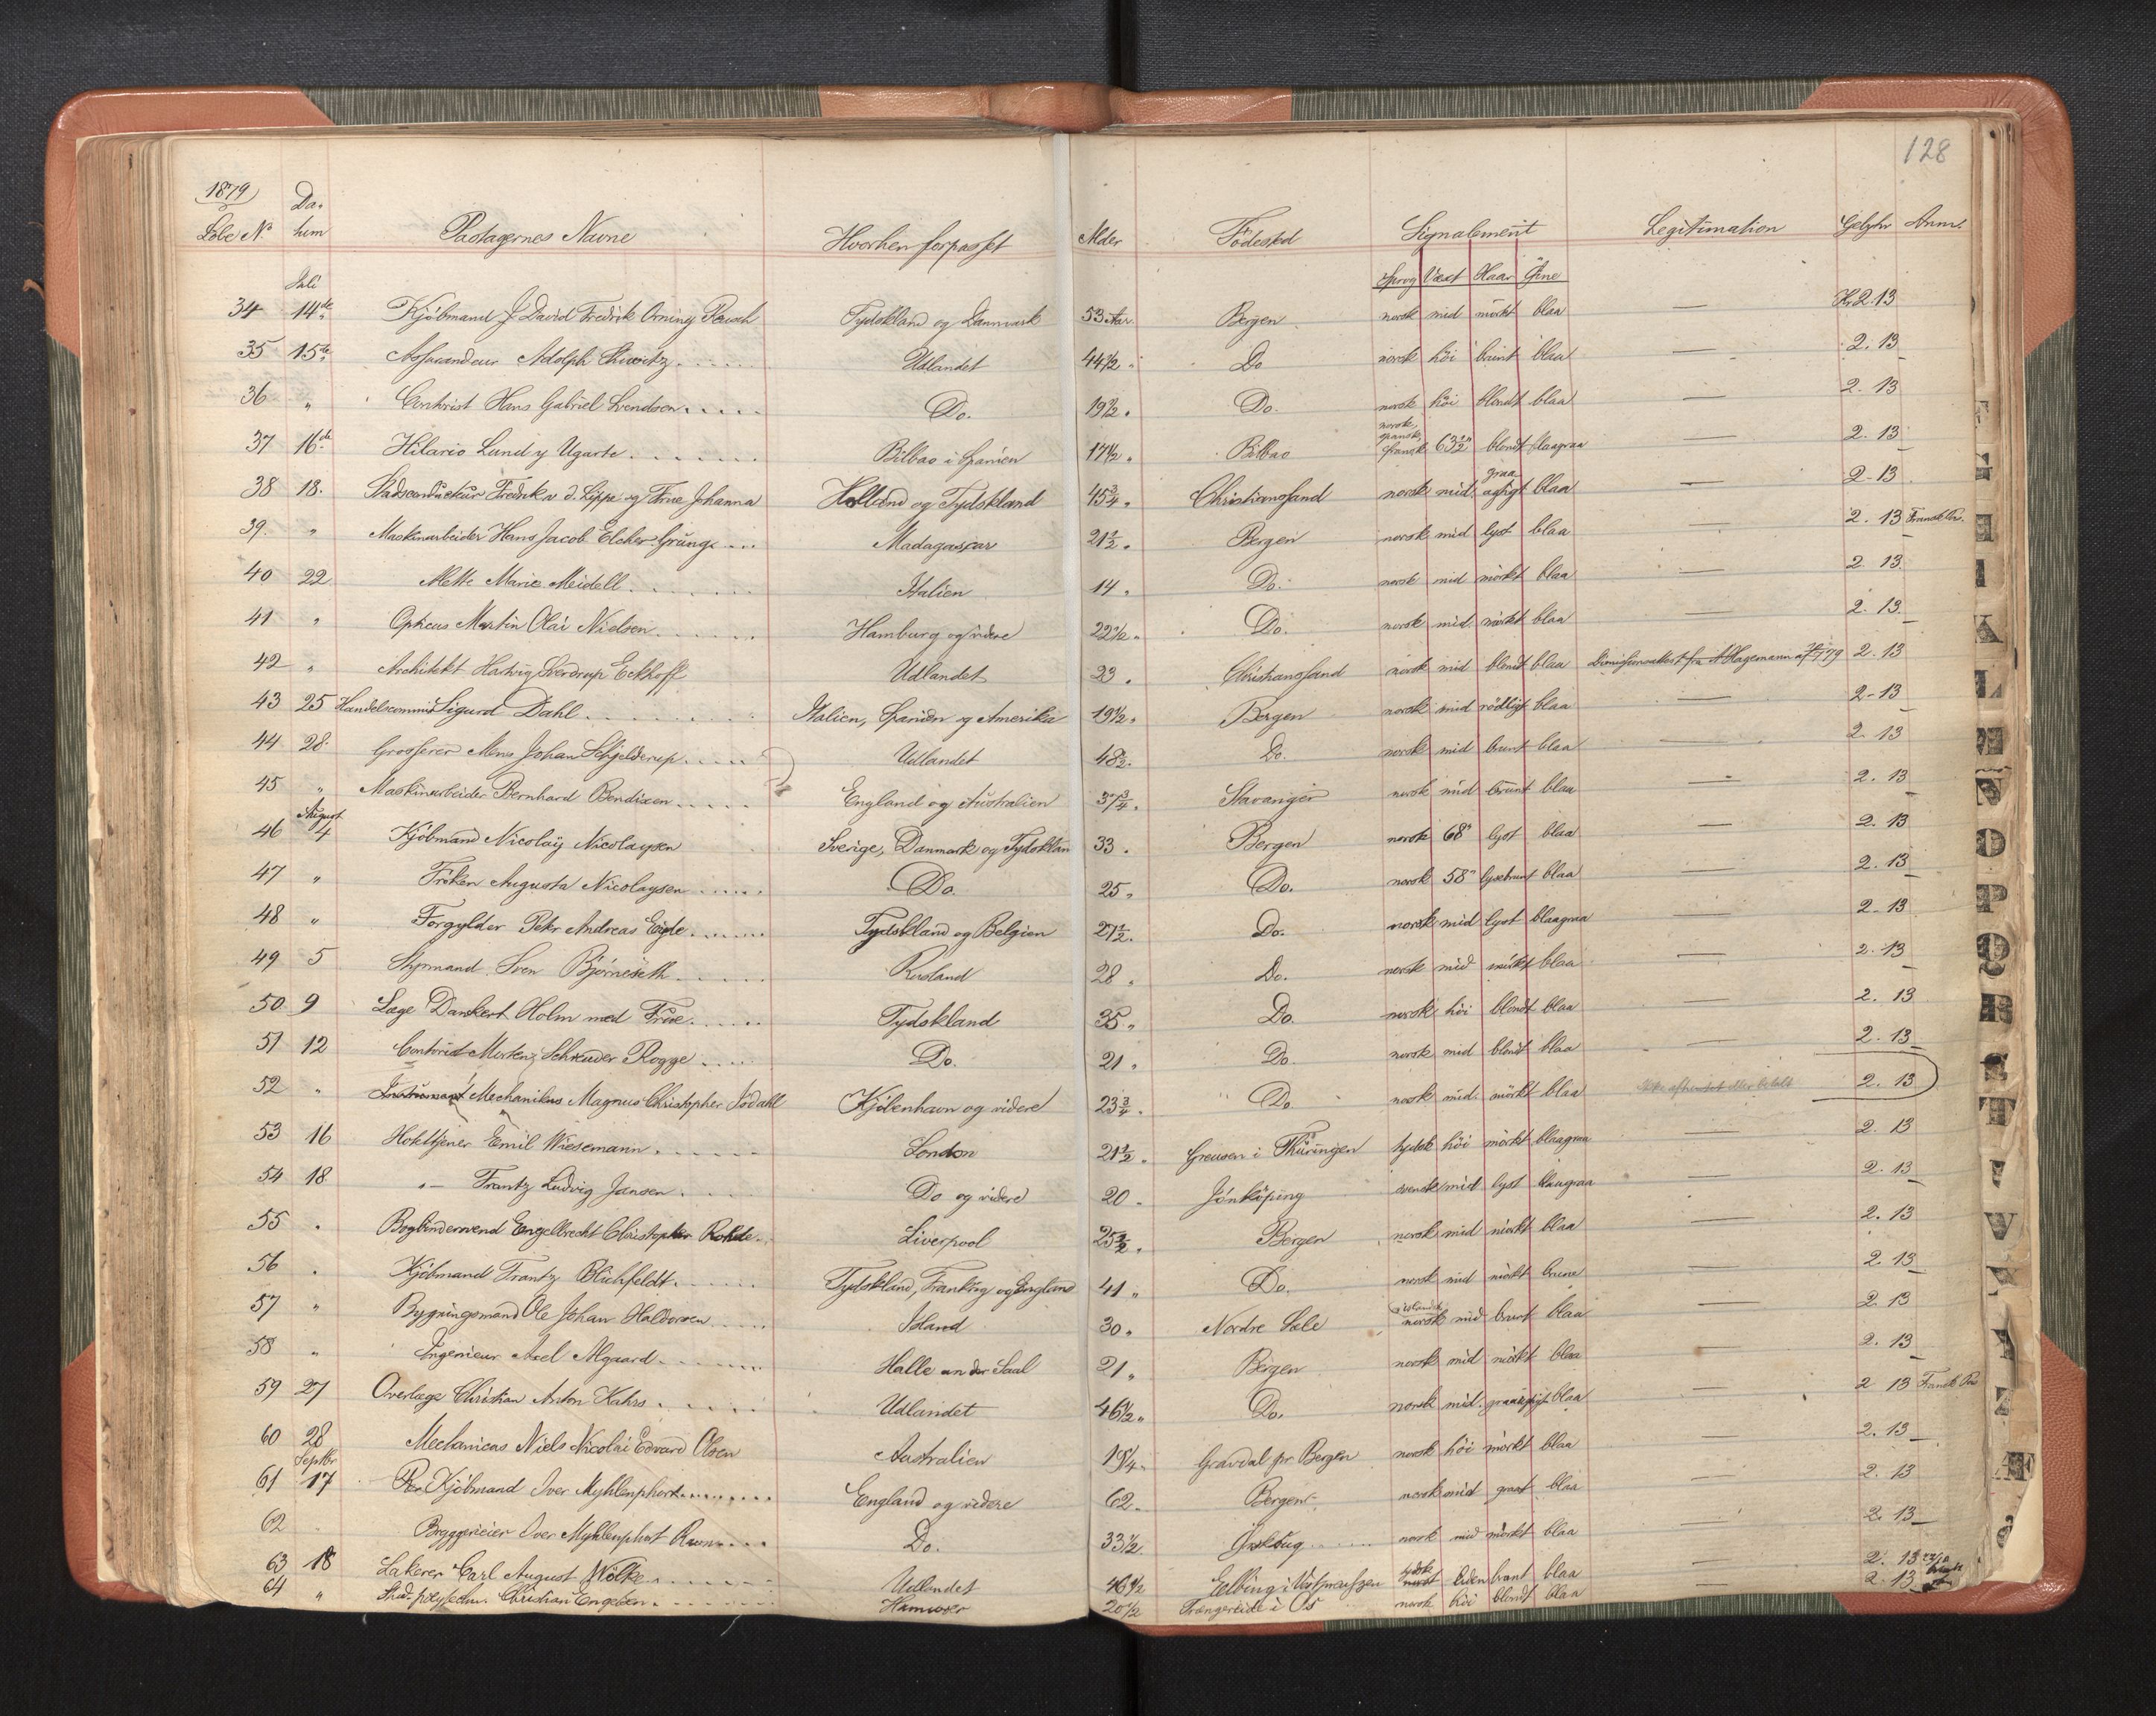 128
1879
Løbe No. Datum Passagernes Navne Hvorhen forpasset Alder Fødested Signalement Legitimation Gebyhr Anm.
Sprog Væxt Haar Øine
Juli
34 14de Kjøbmand J. David Fredrik Orning Tydskland og Danmark 53 Aar Bergen norsk mid mörkt blaa — Kr 2.13
35 15de Assurandeur Adolph Udlandet 44 1/2 " Do norsk höi brunt blaa — 2.13
36 " Contorist Hans Gabriel Svendsen Do. 19 1/2 " Do. norsk höi blondt blaa 2.13
37 16de Hilario Lund y Ugarte Bilbao i Spanien 17 1/2 " Bilbao norsk, spansk, fransk 63 1/2" blondt blaagraa — 2.13
38 18. Stadsconducteur Fredrik v. d. Lippe og Frue Johanna Holland og Tydskland 45 3/4 " Christianssand norsk mid graaagtigt blaa — 2.13
39. " Maskinarbeider Hans Jacob Elcher Grung Madagascar 21 1/2 " Bergen norsk mid lyst blaa — 2.13 Fransk
40 22 Mette Marie Meidell Italien 14 " Do. norsk mid mörkt blaa — 2.13
41 " Opticus Martin Olai Nielsen Hamburg og videre 22 1/2 " Do. norsk mid mörkt blaa — 2.13
42 " Architekt Hartvig Sverdrup Eckhoff Udlandet 23 " Christianssand norsk mid blondt blaa fra Hagemann 79 2.13
43 25 Handelscommis Sigurd Dahl Italien, Spanien og Amerika 19 1/2 " Bergen norsk mid rödligt blaa — 2.13
44 28. Grosserer Mens Johan Schjelderup Udlandet 48 1/2 Do. norsk mid brunt blaa — 2.13
45 " Maskinarbeider Bernhard Bendixen England og Australien 37 3/4 " Stavanger norsk mid brunt blaa — 2.13
August
46 4 Kjöbmand Nicolay Nicolaysen Sverige, Danmark og Tydsklan 33 " Bergen norsk 68" lyst blaa — 2.13
47 " Fröken Augusta Nicolaysen Do. 25 " Do. norsk 58" lysebrunt blaa — 2.13
48 " Forgylder Peter Andreas Eide Tydskland og Belgien 27 1/2 " Do. norsk mid lyst blaagraa — 2.13
49 5 Styrmand Sven Björneseth Rusland 28 " Do. norsk mid mörkt blaa — 2.13
50 9 Læge Dankert Holm med Frue Tydskland 35 " Do. norsk höi blondt blaa — 2.13
51 12 Contorist Morten Schreuder Rogge Do. 21 " Do. norsk mid blondt blaa — 2.13
52 " Mechanikus Magnus Christopher Kjöbenhavn og videre 23 3/4 " Do. norsk mid mörkt blaa Ikke afhentet eller betalt 2.13
53 16 Hoteltjener Emil Wiesemann London 21 1/2 " Greusen i Thüringen tydsk höi mörkt blaagraa — 2.13
54 18 "— Frantz Ludvig Jansen Do og videre 20 Jönköping svensk mid lyst blaagraa — 2.13
55 " Bogbindersvend Engelbrecht Christopher Rohde Liverpool 25 1/2 " Bergen norsk mid mörkt blaa — 2.13
56 " Kjöbmand Frantz Blichfeldt Tydskland, Frankrig og England 41 " Do. norsk mid mörkt brune — 2.13
57 " Bygningsmand Ole Johan Haldorsen Island 30 " Nordre Sæle islandsk norsk mid brunt blaa — 2.13
58 " Ingenieur Axel Algaard Halle an der Saal 21 " Bergen norsk mid mörkt blaa — 2.13
59 27 Overlæge Christian Anton Kahrs Udlandet 46 1/2 " Do. norsk mid graaagtigt blaa — 2.13 Fransk
60 28 Mechanicus Niels Nicolai Edvard Olsen Australien 19 1/4 " Gravdal pr Bergen norsk höi mörkt blaa — 2.13
Septbr
61 17 Kjöbmand Iver Myhlenphort England og videre 62 " Bergen norsk mid graat blaa — 2.13
62 Bryggerieier Iver Myhlenphort Do. 33 1/2 norsk mid mörkt blaa — 2.13
63 18 Lakerer Carl August Wölke Udlandet 46 1/2 Elbing i tydsk liden brunt blaa — 2.13
64 " Stud. polytechn. Christian Engelsen Hannover 20 1/2 Trængereide i Os norsk höi blondt blaa — 2.13
K
L
M
N
O
P
Q
R
S
T
V
Y
Z
Æ